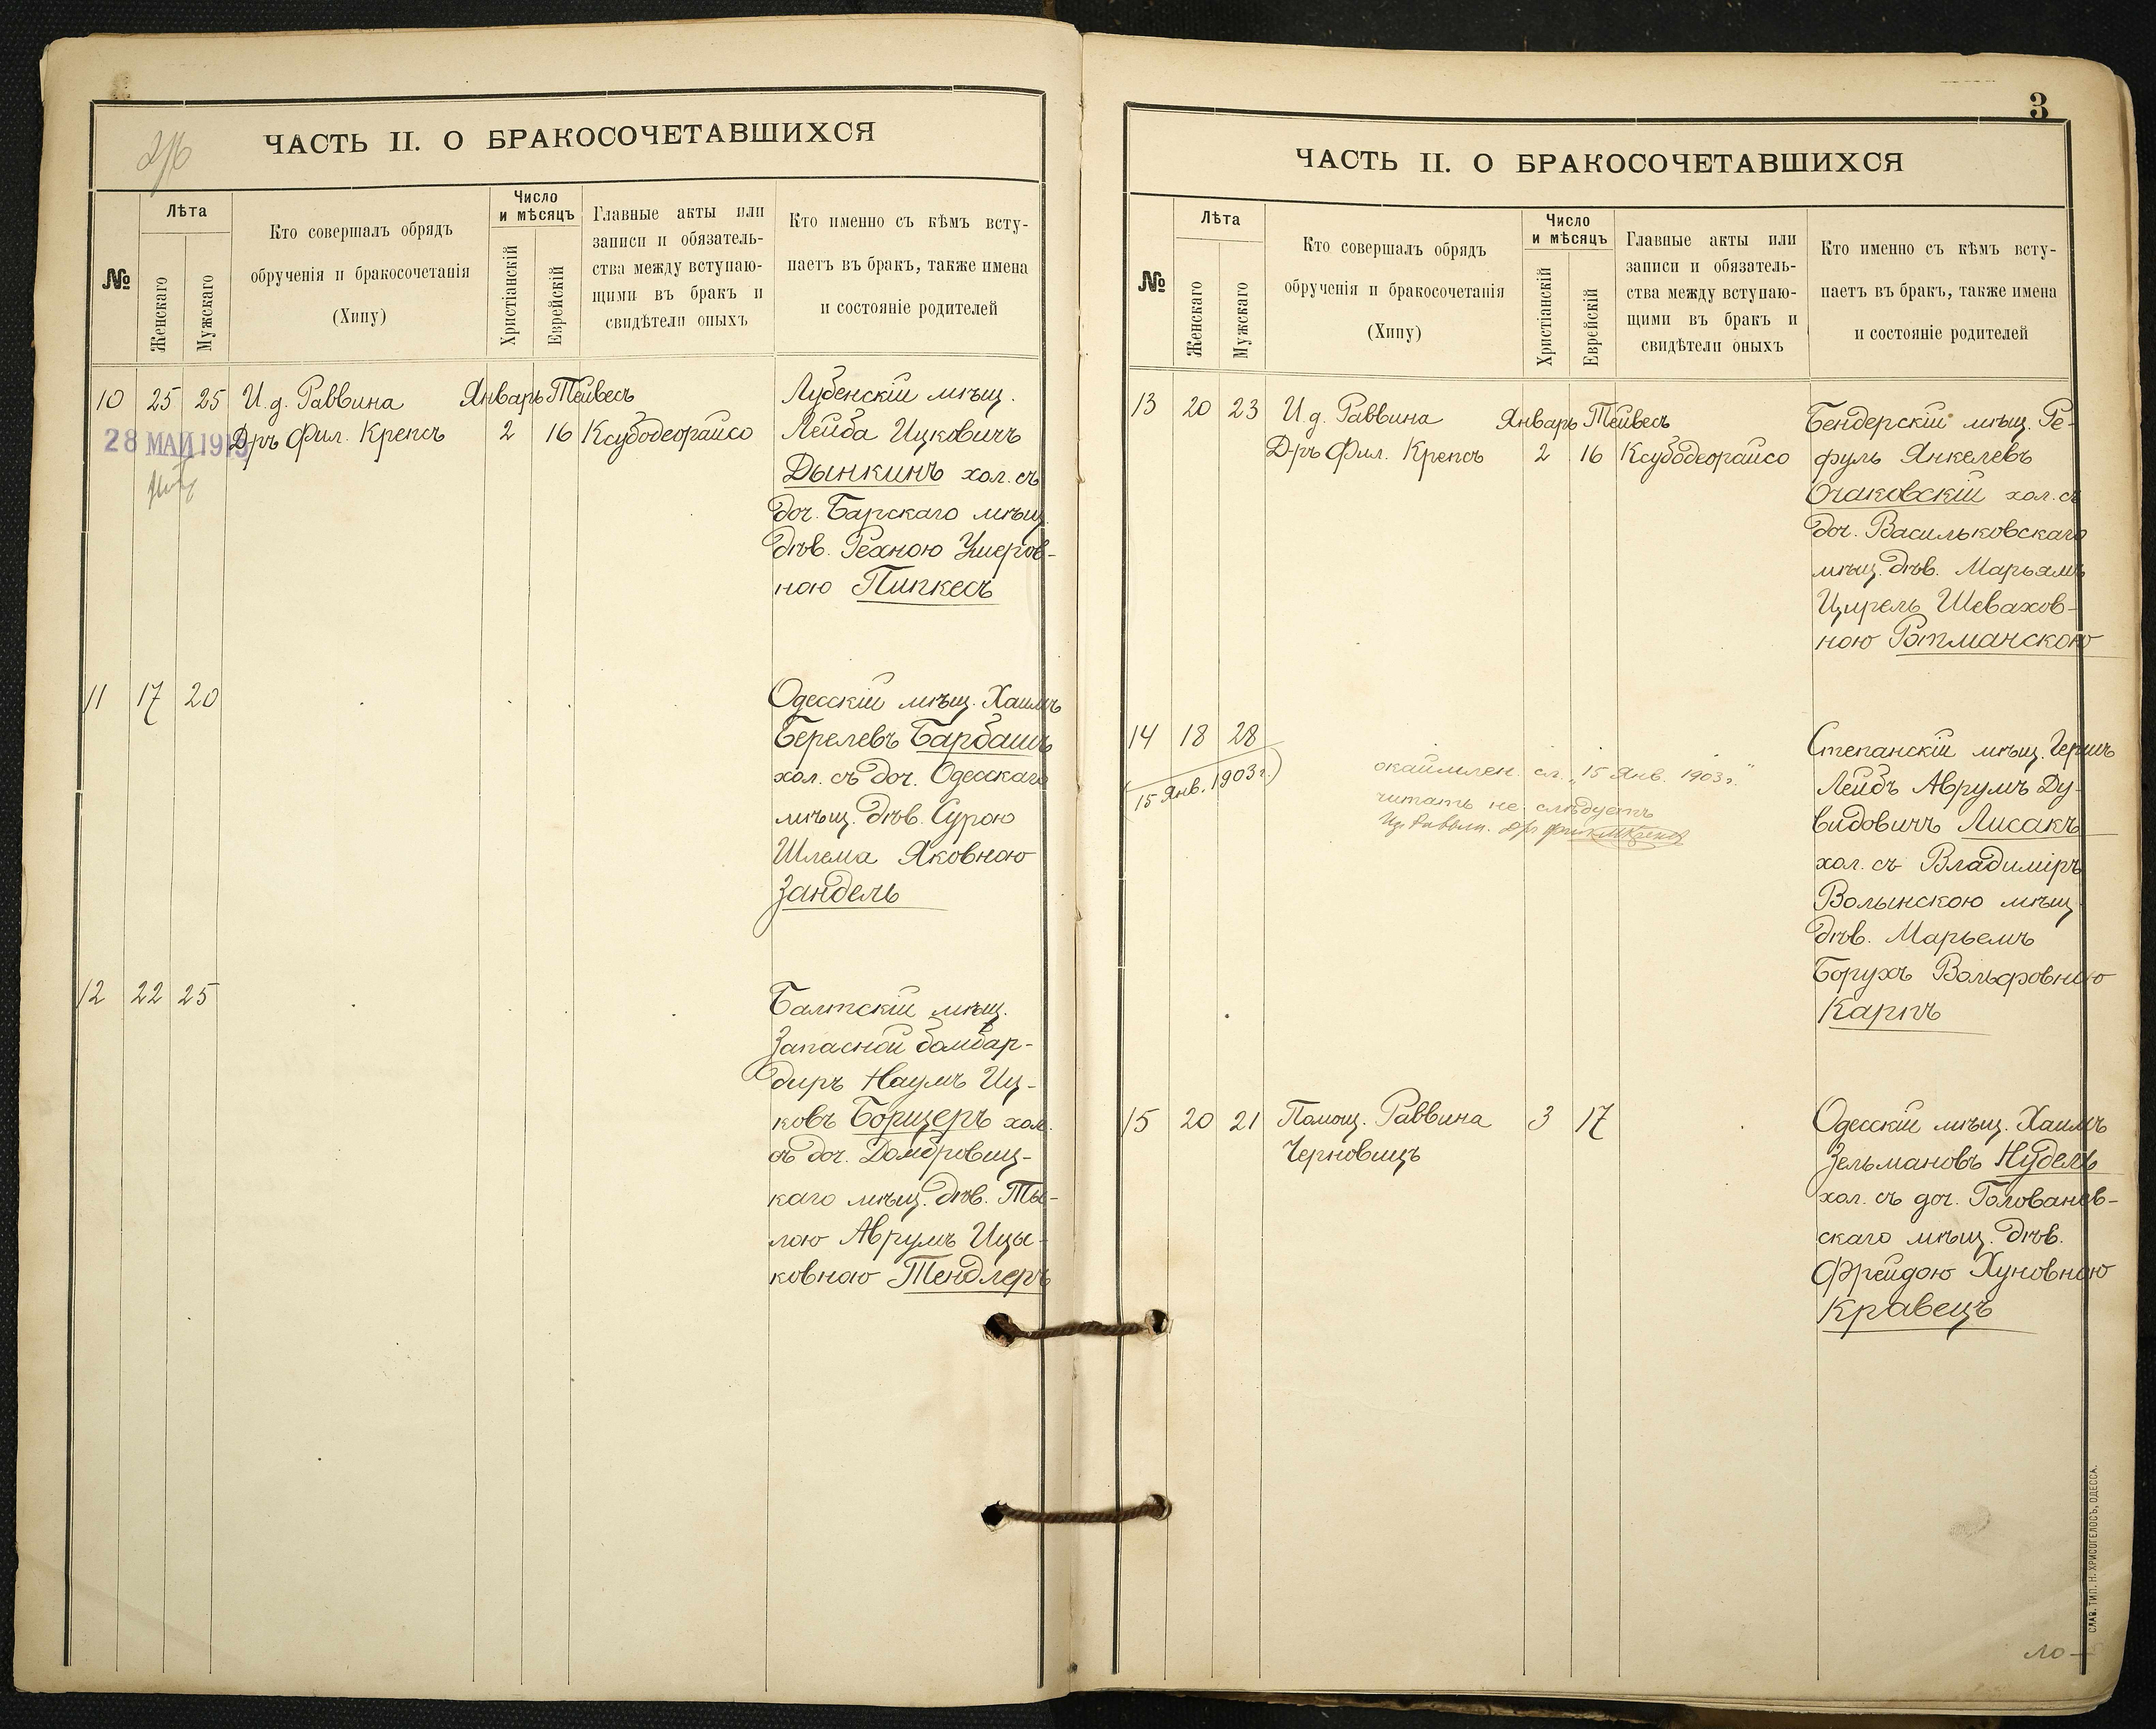 ЧАСТЬ II. О БРАКОСОЧЕТАВШИХСЯ
№
Лѣта
Женскаго
Мужскаго
Кто совершалъ обрядъ
обрученія и бракосочетанія
(Хипу)
Число
и мѣсяцъ
Христіанскій
Еврейскій
Главные акты или
записи и обязатель-
ства между вступаю-
щими въ бракъ и
свидѣтели оныхъ
Кто именно съ кѣмъ всту-
паетъ въ бракъ, также имена
и состояніе родителей
10 25 25 И.д. Раввина Январь Тейвесъ
28 МАЙ 1919
Д-ръ Фил. Крепсъ 2 16 Ксубодеорайсо
Лубенскій мѣщ.
Лейба Ицковичъ
Дынкинъ хол. съ
доч. Барскаго мѣщ.
дѣв. Рехною Ушеров-
ною Пипкесъ
11 17 20
Одесскій мѣщ. Хаимъ
Берелевъ Барбашъ
хол. съ доч. Одесскаго
мѣщ. дѣв. Сурою
Шлема Яковною
Зандель
12 22 25
Балтскій мѣщ.
Запасной бомбар-
диръ Наумъ Иц-
ковъ Борщеръ хол.
съ доч. Домбровиц-
каго мѣщ. дѣв. Ты-
лою Аврумъ Ицы-
ковною Тендлеръ
3
ЧАСТЬ II. О БРАКОСОЧЕТАВШИХСЯ
№
Лѣта
Женскаго
Мужскаго
Кто совершалъ обрядъ
обрученія и бракосочетанія
(Хипу)
Число
и мѣсяцъ
Христіанскій
Еврейскій
Главные акты или
записи и обязатель-
ства между вступаю-
щими въ бракъ и
свидѣтели оныхъ
Кто именно съ кѣмъ всту-
паетъ въ бракъ, также имена
и состояніе родителей
13 20 23 И.д. Раввина Январь Тейвесъ
Д-ръ Фил. Крепсъ 2 16 Ксубодеорайсо
Бендерскій мѣщ. Ре-
фуль Янкелевъ
Очаковскій хол. съ
доч. Васильковскаго
мѣщ. дѣв. Марьямъ
Цирель Шевахов-
ною Ротманскою
14 18 28
(15 Янв. 1903 г.)
окаймлен. сл. „15 Янв. 1903 г."
читать не слѣдуетъ
Степанскій мѣщ. Гершъ
Лейбъ Аврумъ Ду-
видовичъ Лисакъ
хол. съ Владиміръ
Волынскою мѣщ.
дѣв. Марьемъ
Борухъ Вольфовною
Карпъ
15 20 21 Помощ. Раввина 3 17
Черновицъ
Одесскій мѣщ. Хаимъ
Зельмановъ Нудель
хол. съ доч. Голованев-
скаго мѣщ. дѣв.
Фрейдою Хуновною
Кравецъ
СЛАВ. ТИП. Н. ХРИСОГЕЛОСЪ, ОДЕССА.